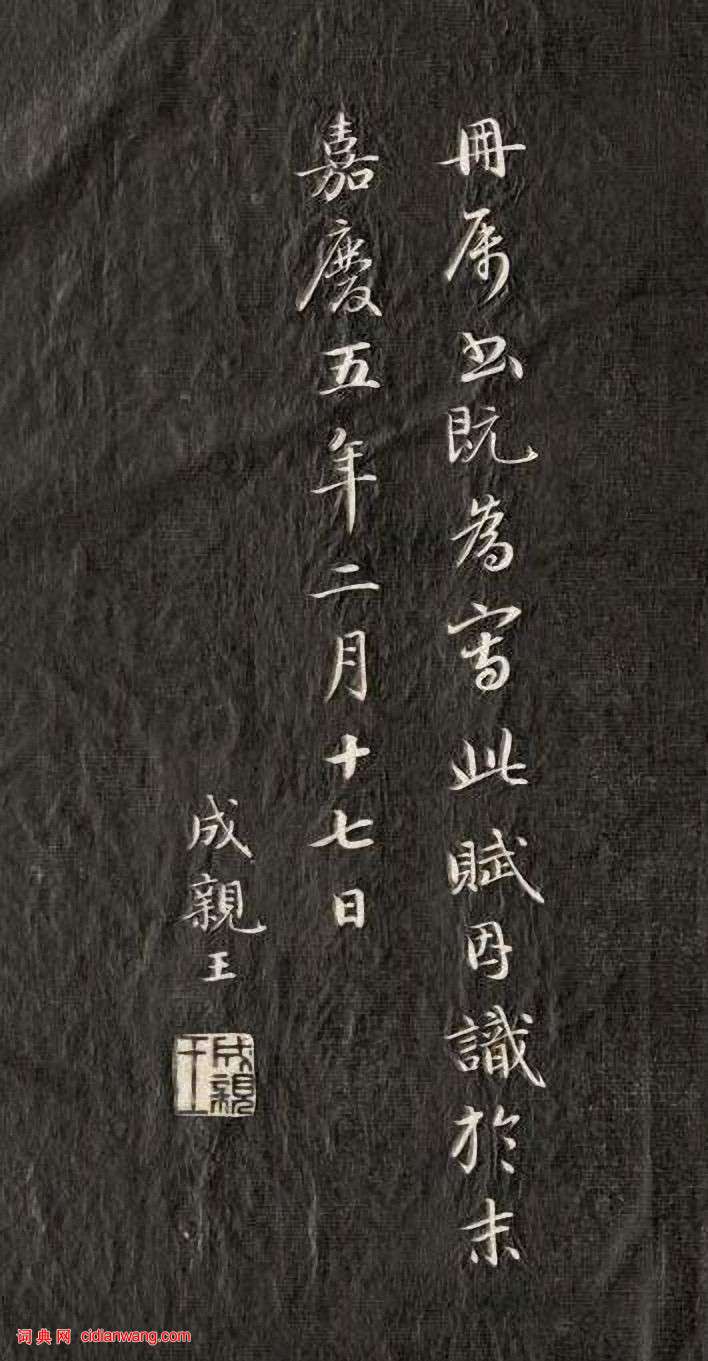 冊属书既為寫此賦因識於末
嘉慶五年二月十七日
成親王
成親王
词典网 cidianwang.com